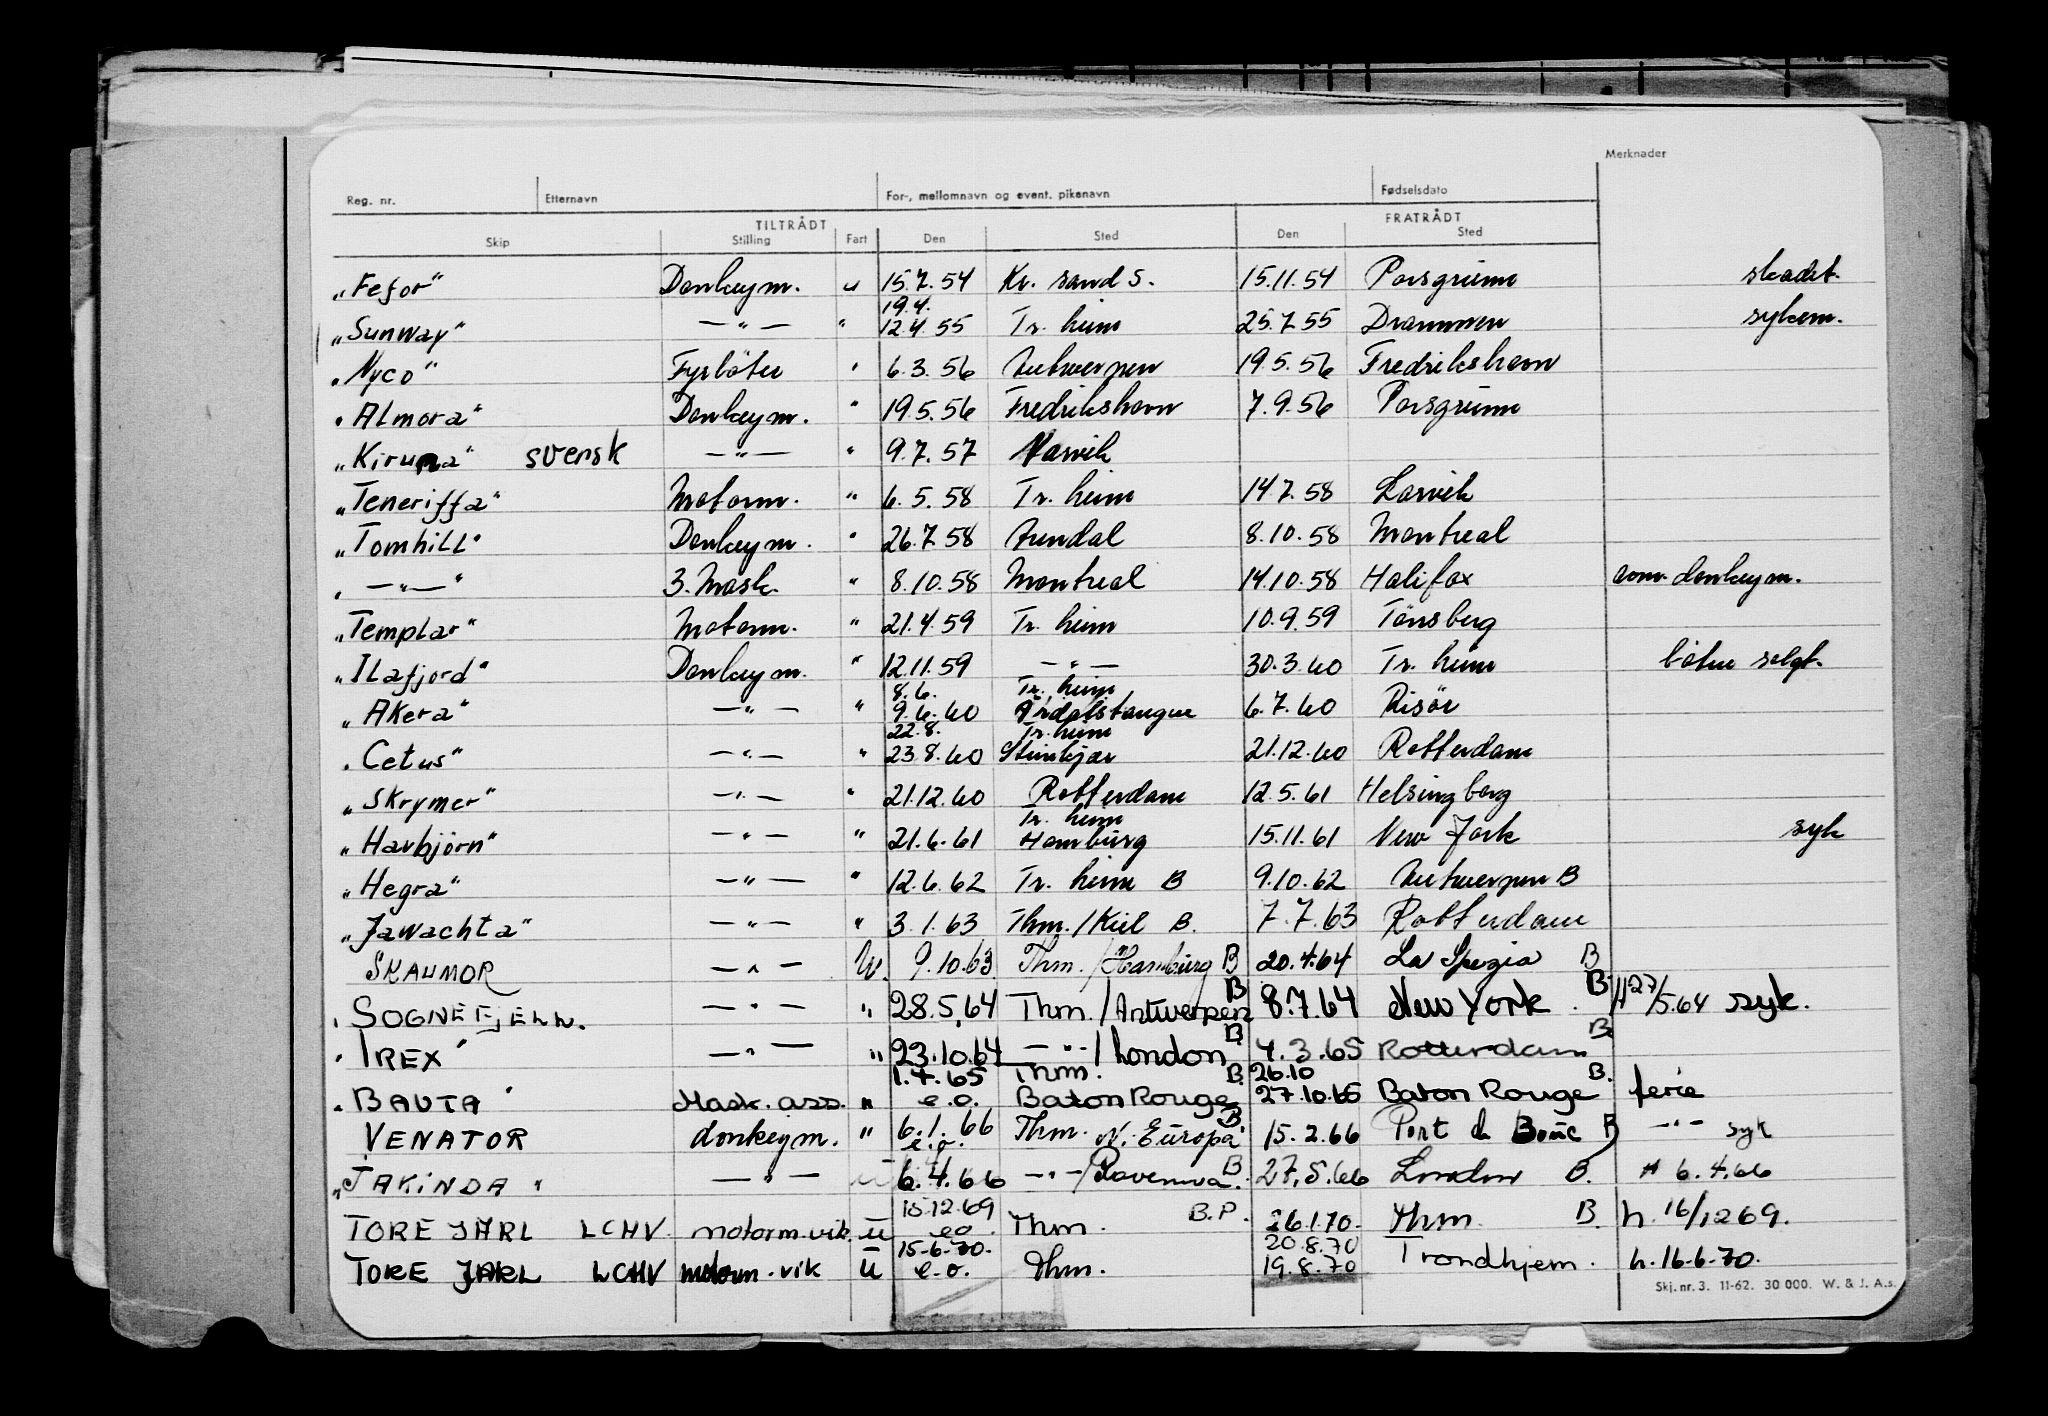 Merknader
Reg. nr. Etternavn For-, mellomnavn og event. pikenavn Fødselsdato
TILTRÅDT FRATRÅDT
Skip Stilling Fart Den Sted Den Sted
"Fefor" Donkeym. u 15.7.54 Kr. sand S. 15.11.54 Porsgrunn skadet.
19.4.
"Sunway" —"— " 12.4.55 Tr. heim 25.7.55 Drammen sykem.
"Nyco" Fyrböter " 6.3.56 Antwerpen 19.5.56 Fredrikshavn
"Almora" Donkeym. " 19.5.56 Fredrikshavn 7.9.56 Porsgrunn
"Kiruna" svensk —"— " 9.7.57 Narvik
"Teneriffa" Motorm. " 6.5.58 Tr. heim 14.7.58 Larvik
"Tomhill" Donkeym. " 26.7.58 Arendal 8.10.58 Montreal
" —"— " 3. Mask. " 8.10.58 Montreal 14.10.58 Halifax donkeym.
"Templar" Motorm. " 21.4.59 Tr. heim 10.9.59 Tönsberg
"Ilafjord" Donkeym. " 12.11.59 —"— 30.3.60 Tr. heim båten solgt.
8.6. Tr. heim
"Akera" —"— " 9.6.60 Årdalstangen 6.7.60 Risör
22.8. Tr. heim
"Cetus" —"— " 23.8.60 Steinkjær 21.12.60 Rotterdam
"Skrymer" —"— " 21.12.60 Rotterdam 12.5.61 Helsingborg
Tr. heim
"Havbjörn" —"— " 21.6.61 Hamburg 15.11.61 New York syk
"Hegra" —"— " 12.6.62 Tr. heim B 9.10.62 Antwerpen B
"Jawachta" —"— " 3.1.63 Thm./Kiel B. 7.7.63 Rotterdam
SKAUMOR —"— U. 9.10.63 Thm./Hamburg B 20.4.64 La Spezia B
"SOGNEFJELL. —"— " 28.5.64 Thm./Antwerpen B 8.7.64 New York. B H 27/5.64 syk.
"IREX" —"— " 23.10.64 —"—/London B. 4.3.65 Rotterdam B.
1.4.65 Thm. B. 26.10 B.
"BAUTA" Mask. ass. " e.o. Baton Rouge 27.10.65 Baton Rouge ferie
VENATOR donkeym. " 6.1.66 e.o. Thm. N. Europa B. 15.2.66 Port de Bouc B —"— syk
"JAKINDA" —"— U 6.4.66 —"—/Ravenna. B 27.5.66 London B. H 6.4.66
15.12.69
TORE JARL LCHV. motorm. vik. U eo Thm. B.P. 26.1.70. Thm. B. h. 16/12 69.
15-6-70. 20.8.70
TORE JARL LCHV motorm. vik U e.o. Thm. 19.8.70 Trondhjem. h. 16-6-70.
Skj. nr. 3. 11-62. 30 000. W. & J. A.s.